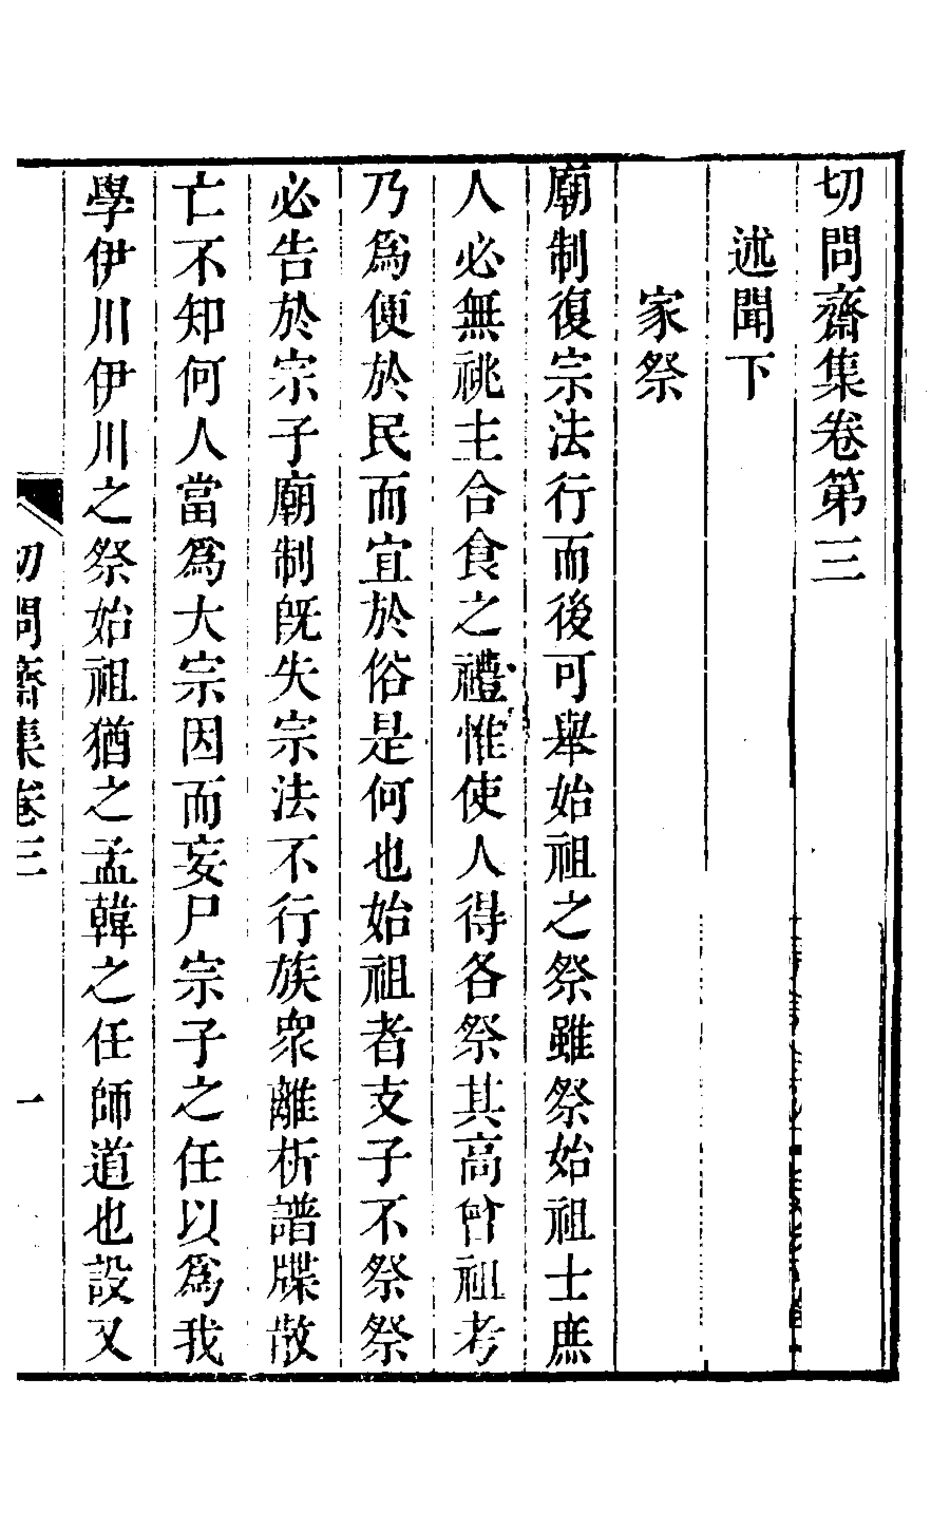 切問齋集卷第三
述聞下
家祭
廟制復宗法行而後可舉始祖之祭雖祭始祖士庶
人必無祧主合食之禮惟使人得各祭其高曾祖考
乃為便於民而宜於俗是何也始祖者支子不祭祭
必告於宗子廟制旣失宗法不行族衆離析譜牒散
亡不知何人當為大宗因而妄尸宗子之任以為我
學伊川伊川之祭始祖猶之孟韓之任師道也設又
切問齋集卷三
一